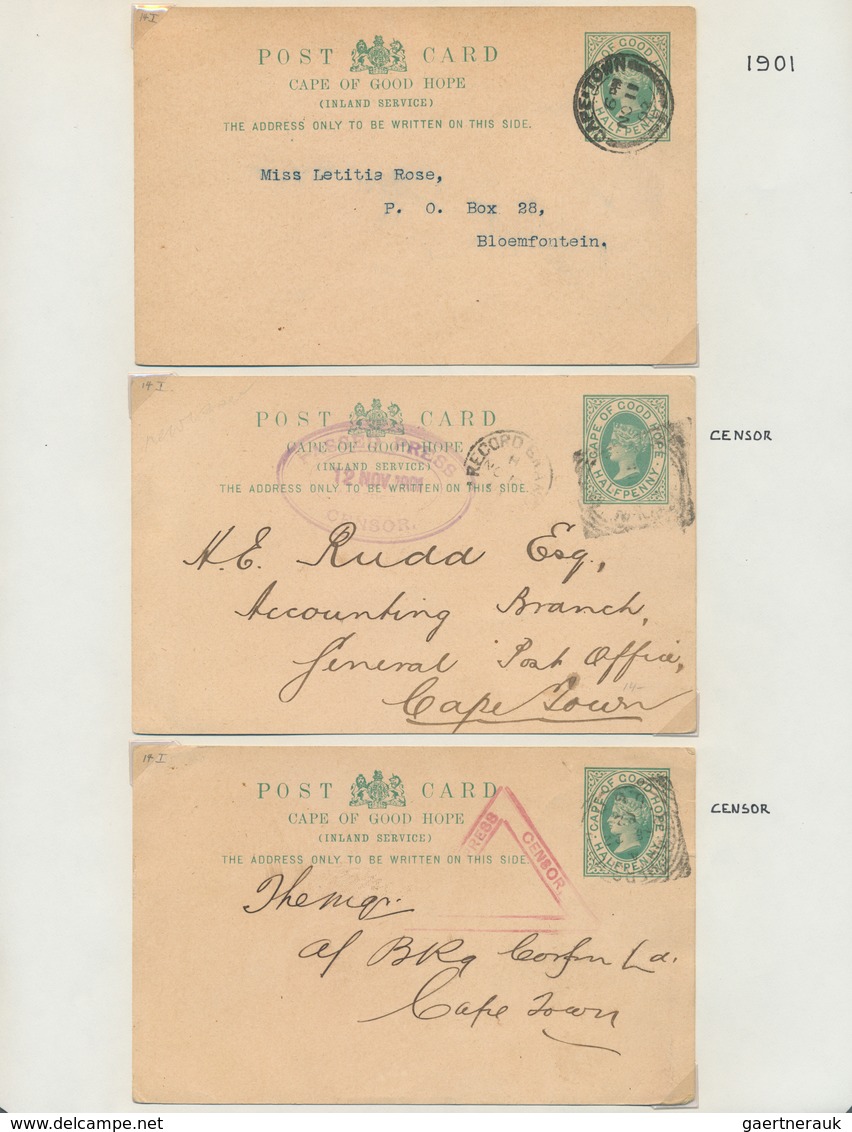 14-I
POST CARD
CAPE OF GOOD HOPE
(INLAND SERVICE)
THE ADDRESS ONLY TO BE WRITTEN ON THIS SIDE.
OF GOOD
HALFPENNY
CAPE·TOWN
NO 11
1901
Miss Letitia Rose,
P. O. Box 28,
Bloemfontein.
14-I
POST CARD
CAPE OF GOOD HOPE
(INLAND SERVICE)
THE ADDRESS ONLY TO BE WRITTEN ON THIS SIDE.
CAPE OF GOOD HOPE
HALFPENNY
PRESS
12 NOV 1901
CENSOR.
RECORD
CENSOR
H. E. Rudd Esq,
Accounting Branch,
General Post Office,
Cape Town
14-I
POST CARD
CAPE OF GOOD HOPE
(INLAND SERVICE)
THE ADDRESS ONLY TO BE WRITTEN ON THIS SIDE.
CAPE OF GOOD HOPE
HALFPENNY
CENSOR
CENSOR
The mgr.
af BKg Corpn Ld.
Cape Town
gaertnerauk